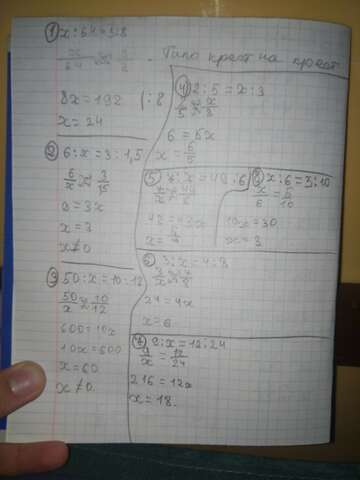 ① x : 64 = 3:8
x/64 = 3/8 . Типо крест на крест
8x = 192 | : 8
x = 24
② 6 : x = 3 : 1,5
6/x = 3/1,5
9 = 3x
x = 3
x ≠ 0
③ 50 : x = 10 : 12
50/x = 10/12
600 = 10x
10x = 600
x = 60
x ≠ 0
④ 2 : 5 = x : 3
2/5 = x/3
6 = 5x
x = 6/5
⑤
x =
⑧ x : 6 = 5 : 10
x/6 = 5/10
10x = 30
x = 3
⑥ 3 : x = 4 : 8
3/x = 4/8
24 = 4x
x = 6
⑦ 9 : x = 12 : 24
9/x = 12/24
216 = 12x
x = 18.